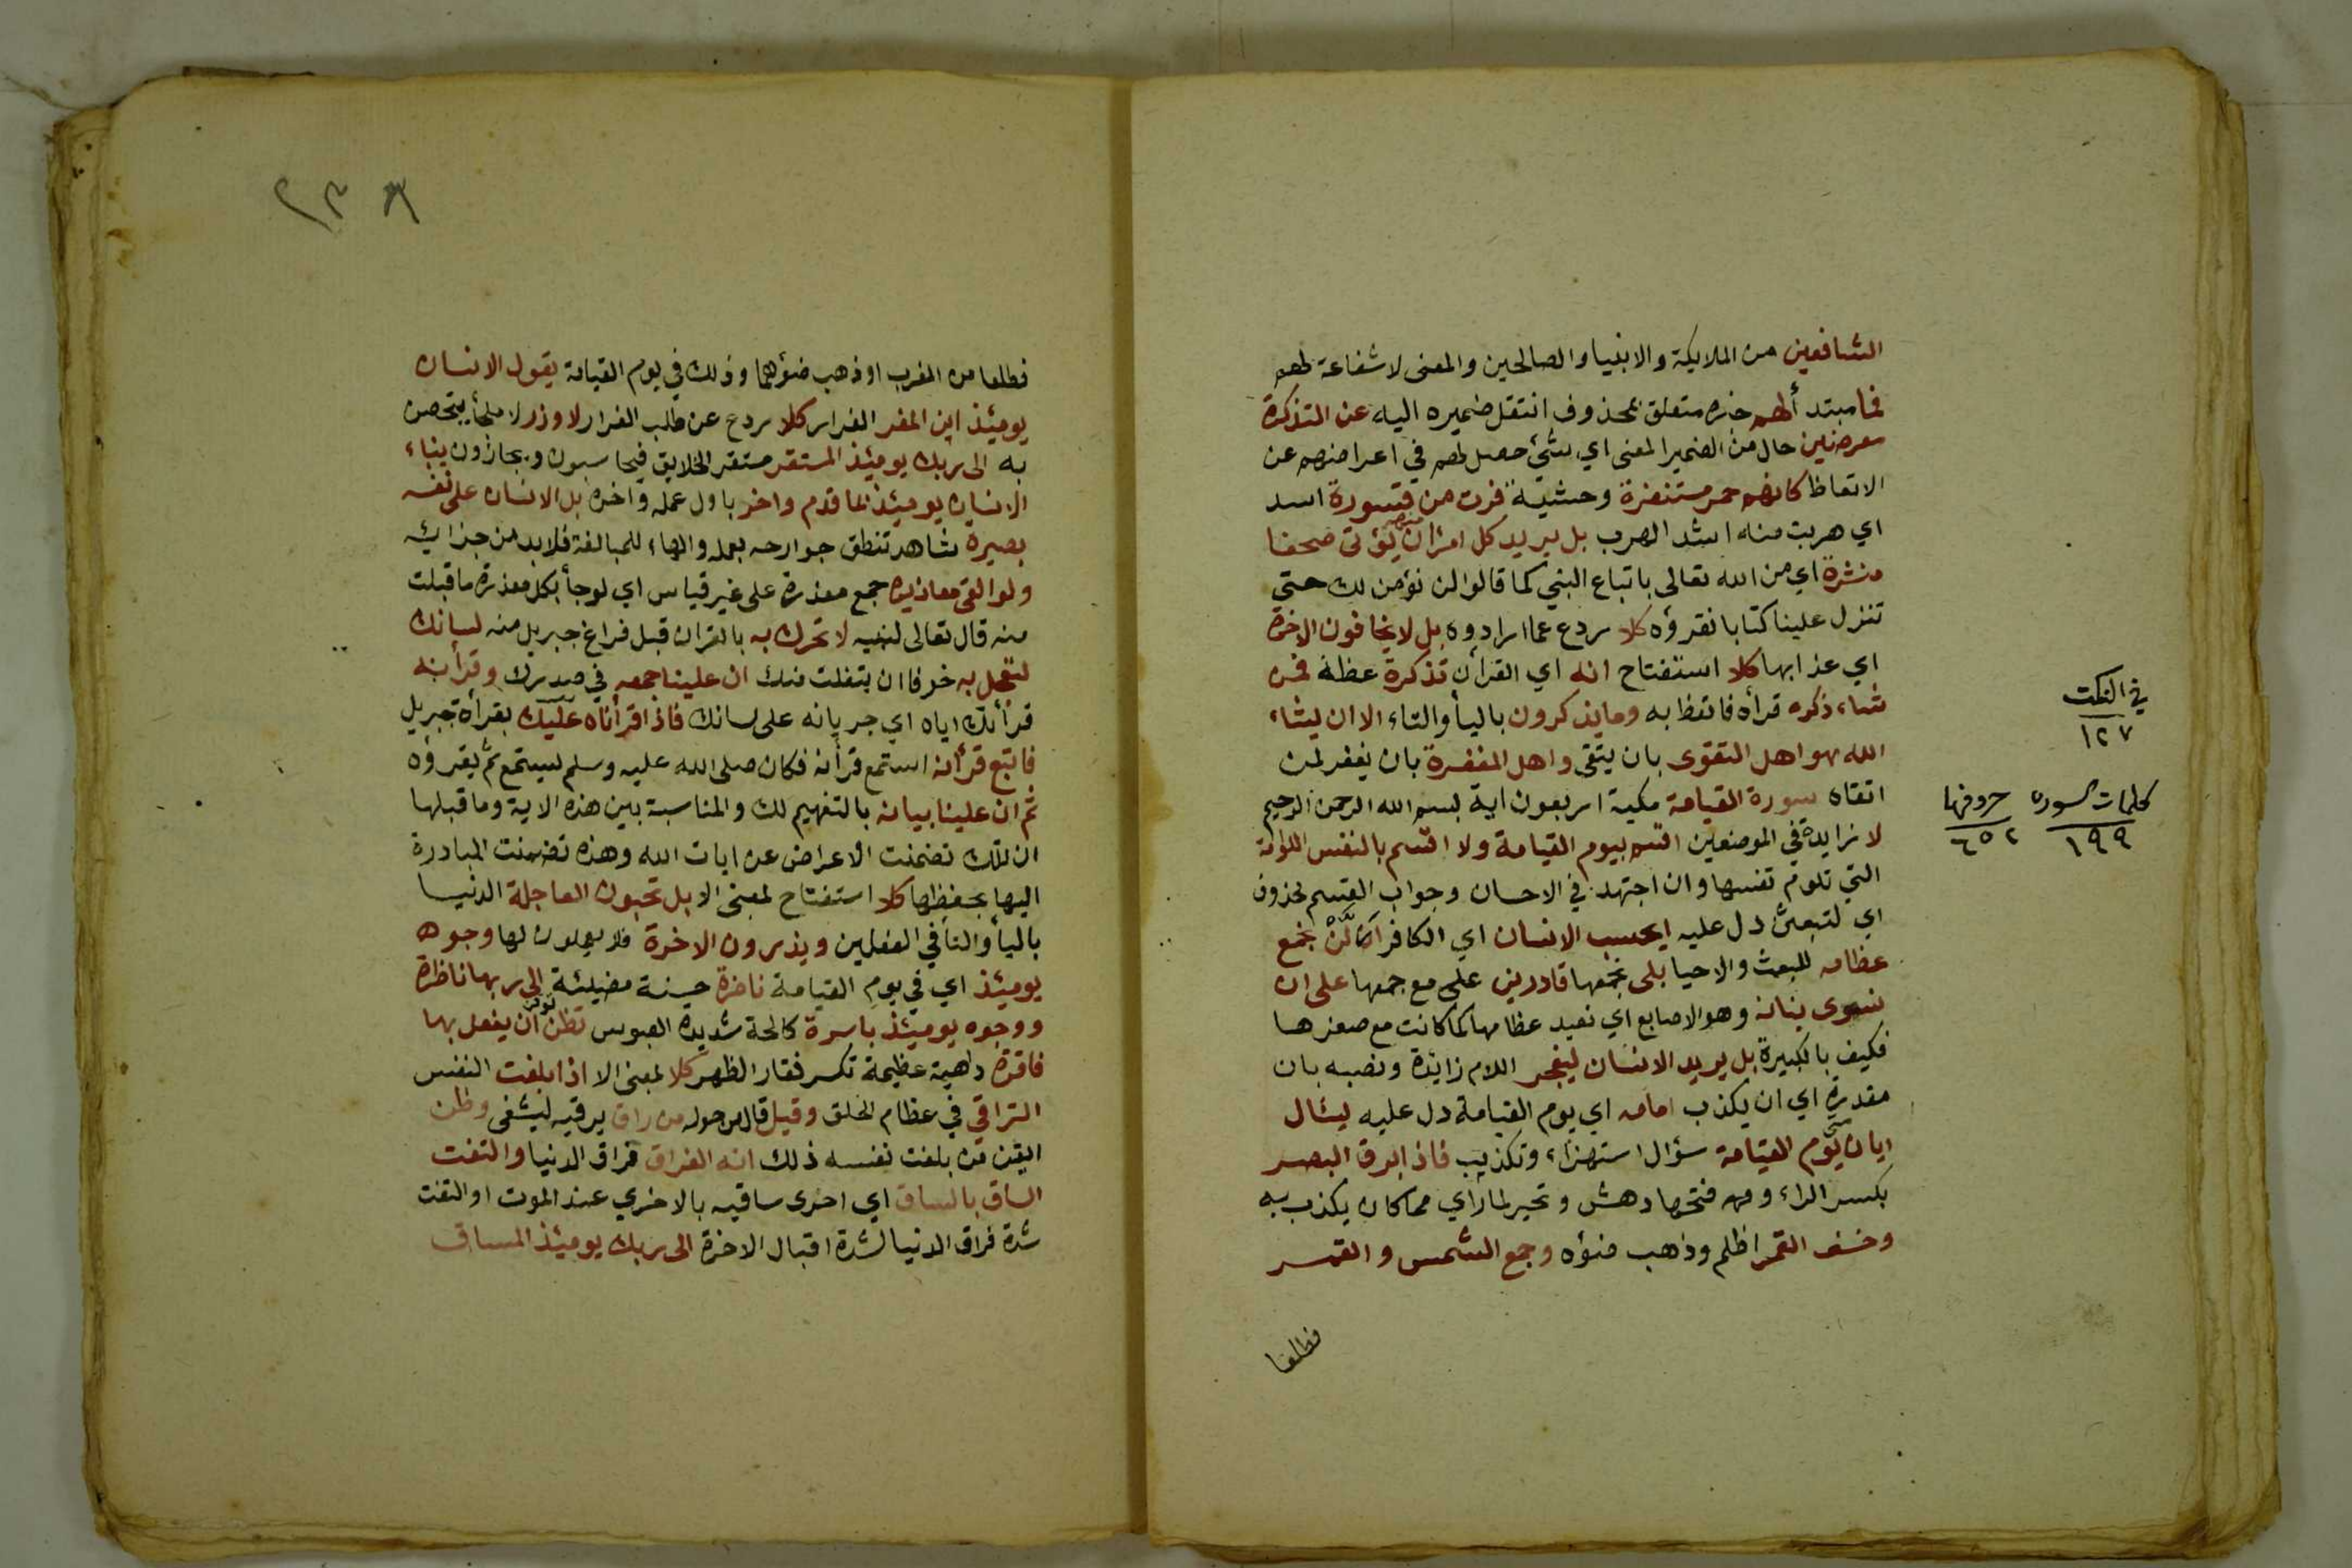 الشافعين من الملايكة والانبيا والصالحين والمعنى لا شفاعة لهم
فما مبتد ألهم خبره متعلق بمحذوف انتقل ضميره اليه عن التذكرة
معرضين حال من الضمير المعنى اي شئ حصل لهم في اعراضهم عن
الاتعاظ كانهم حمر مستنفرة وحشية فرت من قسورة اسد
اي هربت منه اشد الهرب بل يريد كل امرئ منهم ان يؤتى صحفا
منشرة اي من الله تعالى باتباع النبي كما قالوا لن نؤمن لك حتى
تنزل علينا كتابا نقرؤه كلا ردع عما ارادوه بل لا يخافون الاخرة
اي عذابها كلا استفتاح انه اي القرأن تذكرة عظة فمن
شاء ذكره قرأه فاتعظ به وما يذكرون باليأ والتاء الا ان يشاء
الله هو اهل التقوى بان يتقى واهل المغفرة بان يغفر لمن
اتقاه سورة القيامة مكية اربعون اية بسم الله الرحمن الرحيم
لا زايدة في الموضعين اقسم بيوم القيامة ولا اقسم بالنفس اللوامة
التي تلوم نفسها وان اجتهد في الاحسان وجواب القسم محذوف
اي لتبعثن دل عليه ايحسب الانسان اي الكافر ان لن نجمع
عظامه للبعث والاحيا بلى نجمعها قادرين على مع جمعها على ان
نسوى بنانه وهو الاصابع اي نعيد عظامها كما كانت مع صغرها
فكيف بالكبيرة بل يريد الانسان ليفجر اللام زايدة ونصبه بان
مقدرة اي ان يكذب امامه اي يوم القيامة دل عليه يسئال
ايان متى يوم القيامة سؤال استهزاء وتكذيب فاذا برق البصر
بكسر الراء وفتحها دهش وتحير لما رأي مما كان يكذب به
وخسف القمر اظلم وذهب ضوءه وجمع الشمس والقمر
فطلعا
في النكت
١٢٧
كلمات السوره حروفها
١٩٩ ٦٥٢
فطلعا من المغرب او ذهب ضوءهما وذلك في يوم القيامة يقول الانسان
يومئذ اين المفر الفرار كلا ردع عن طلب الفرار لا وزر لا ملجأ يتحصن
به الى ربك يومئذ المستقر مستقر الخلايق فيحاسبون ويجازون ينباء
الانسان يومئذ بما قدم واخر باول عمله واخره بل الانسان على نفسه
بصيرة شاهد تنطق جوارحه بعمله والهاء للمبالغة فلا بد من جزائه
ولو القى معاذيره جمع معذرة على غير قياس اي لو جأ بكل معذرة ما قبلت
منه قال تعالى لنبيه لا تحرك به بالقران قبل فراغ جبريل منه لسانك
لتعجل به خوفا ان يتفلت منك ان علينا جمعه في صدرك وقرأنه
قرأتك اياه اي جريانه على لسانك فاذا قرأناه عليك بقرأة جبريل
فاتبع قرأنه استمع قرأنه فكان صلى الله عليه وسلم يستمع ثم يقرؤه
ثم ان علينا بيانه بالتفهيم لك والمناسبة بين هذه الاية وما قبلها
ان تلك تضمنت الاعراض عن ايات الله وهذه تضمنت المبادرة
اليها بحفظها كلا استفتاح بمعنى الا بل تحبون العاجلة الدنيا
باليأ والتأ في الفعلين ويذرون الاخرة فلا يعملون لها وجوه
يومئذ اي في يوم القيامة ناضرة حسنة مضيئة الى ربها ناظرة
ووجوه يومئذ باسرة كالحة شديدة العبوس تظن توقن ان يفعل بها
فاقرة داهية عظيمة تكسر فقار الظهر كلا بمعنى الا اذا بلغت النفس
التراقي في عظام الحلق وقيل قال من حوله من راق يرقيه ليشفى وظن
ايقن من بلغت نفسه ذلك انه الفراق فراق الدنيا والتفت
الساق بالساق اي احدى ساقيه بالاخري عند الموت او التفت
شدة فراق الدنيا لشدة اقبال الاخرة الى ربك يومئذ المساق